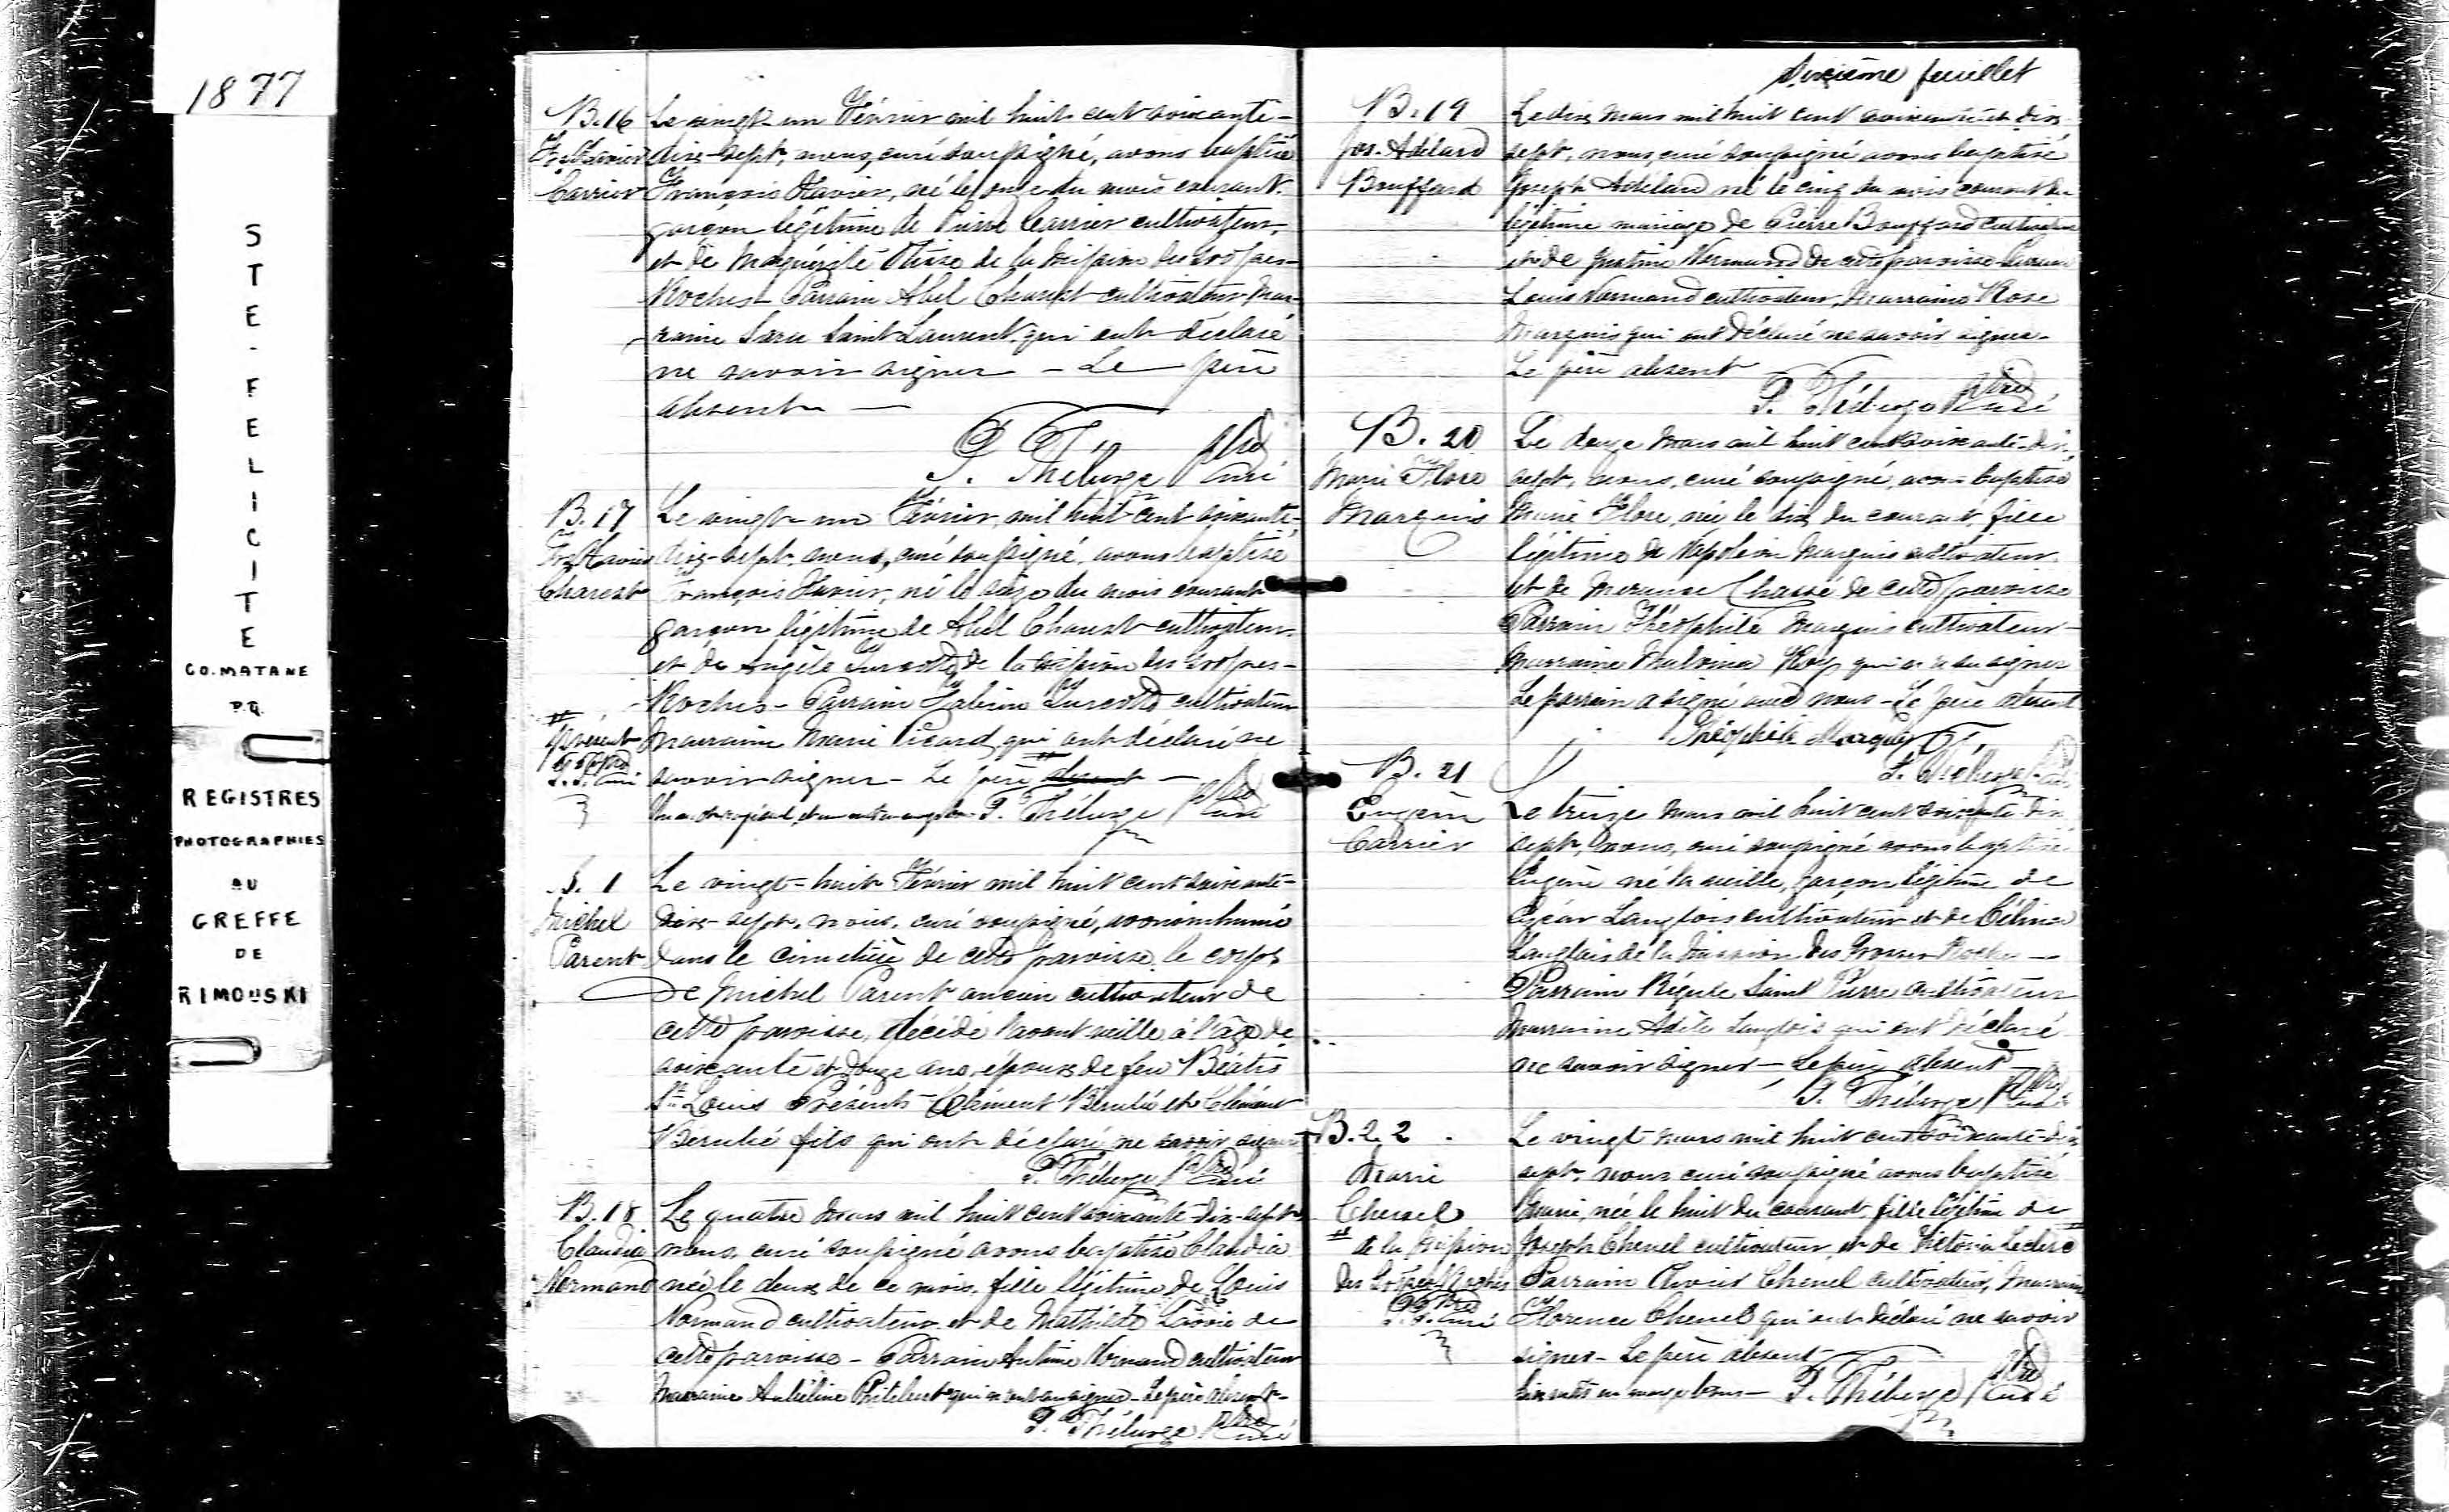 1877
STE-FELICITE
CO. MATANE
P.Q.
REGISTRES
PHOTOGRAPHIES
AU
GREFFE
DE
RIMOUSKI
B.16
Frs Xavier
Carrier
Le vingt-un Février mil huit cent soixante-
dix-sept, nous, curé soussigné, avons baptisé
François Xavier, né le onze du mois courant,
garçon légitime de Pierre Carrier cultivateur,
et de Marguérite de la Mission des Grosses-
Roches - Parrain Abel Charest cultivateur Mar-
raine Sara Saint Laurent qui ont déclaré
ne savoir signer - Le père
absent -
P. Théberge Ptre Curé
B.17
Frs Xavier
Charest
Le vingt-un Février mil huit cent soixante-
dix-sept, nous, curé soussigné, avons baptisé
François Xavier, né le seize du mois courant
garçon légitime de Abel Charest cultivateur
et de Angèle Turcotte de la Mission des Grosses-
Roches - Parrain Turcotte cultivateur
Marraine Marie Picard qui ont déclaré ne
savoir signer - Le père # absent -
# présent
P.T. Ptre Curé
P. Théberge Ptre Curé
S. 1
Michel
Parent
Le vingt-huit Février mil huit cent soixante-
dix-sept, nous, curé soussigné, avons inhumé
dans le cimetière de cette paroisse le corps
de Michel Parent ancien cultivateur de
cette paroisse, décédé l'avant veille à l'âge de
soixante et douze ans, époux de feu
St Louis Présents Clément Bérubé et Clément
Bérubé fils qui ont déclaré ne savoir signer
P. Théberge Ptre Curé
B.18
Claudia
Normand
Le quatre Mars mil huit cent soixante-dix-sept
nous, curé soussigné avons baptisé Claudia
née le deux de ce mois, fille légitime de Louis
Normand cultivateur et de Mathilde Lavoie de
cette paroisse - Parrain Antime Normand cultivateur
Marraine qui ont su signer - Le père absent -
P. Théberge Ptre Curé
feuillet
B.19
Jos. Adélard
Bouffard
Le dix Mars mil huit cent soixante et dix
sept, nous, curé soussigné avons baptisé
Joseph Adélard né le cinq du mois courant du
légitime mariage de Pierre Bouffard cultivateur
et de Justine Normand de cette paroisse Parrain
Louis Normand cultivateur, Marraine Rose
Marquis qui ont déclaré ne savoir signer -
Le père absent
P. Théberge Ptre Curé
B. 20
Marie Flore
Marquis
Le douze Mars mil huit cent soixante-dix-
sept, nous, curé soussigné, avons baptisé
Marie Flore, née le dix du courant, fille
légitime de Napoléon Marquis cultivateur
et de Chassé de cette paroisse
Parrain Théophile Marquis cultivateur -
Marraine Malvina Roy signer
Le parrain a signé avec nous - Le père absent
Théophile Marquis
P. Théberge Ptre
B. 21
Eugène
Carrier
Le treize Mars mil huit cent soixante dix
sept, nous, curé soussigné avons baptisé
Eugène né la veille, garçon légitime de
Langlois cultivateur et de Célina
Langlais de la Mission des Grosses Roches -
Parrain Régule Saint Pierre cultivateur
Marraine Adèle Langlois qui ont déclaré
ne savoir signer - Le père absent
P. Théberge Ptre Curé
B. 22
Marie
Chenel
# de la Mission
des Grosses Roches
P.T. Ptre Curé
Le vingt Mars mil huit cent soixante-dix
sept, nous curé soussigné avons baptisé
Marie, née le huit du courant, fille légitime de
Joseph Chenel cultivateur et de Victoria Leclerc #
Parrain Chenel cultivateur, Marraine
Florence Chenel qui ont déclaré ne savoir
signer - Le père absent
Six mots en marge bons - P. Théberge Ptre Curé